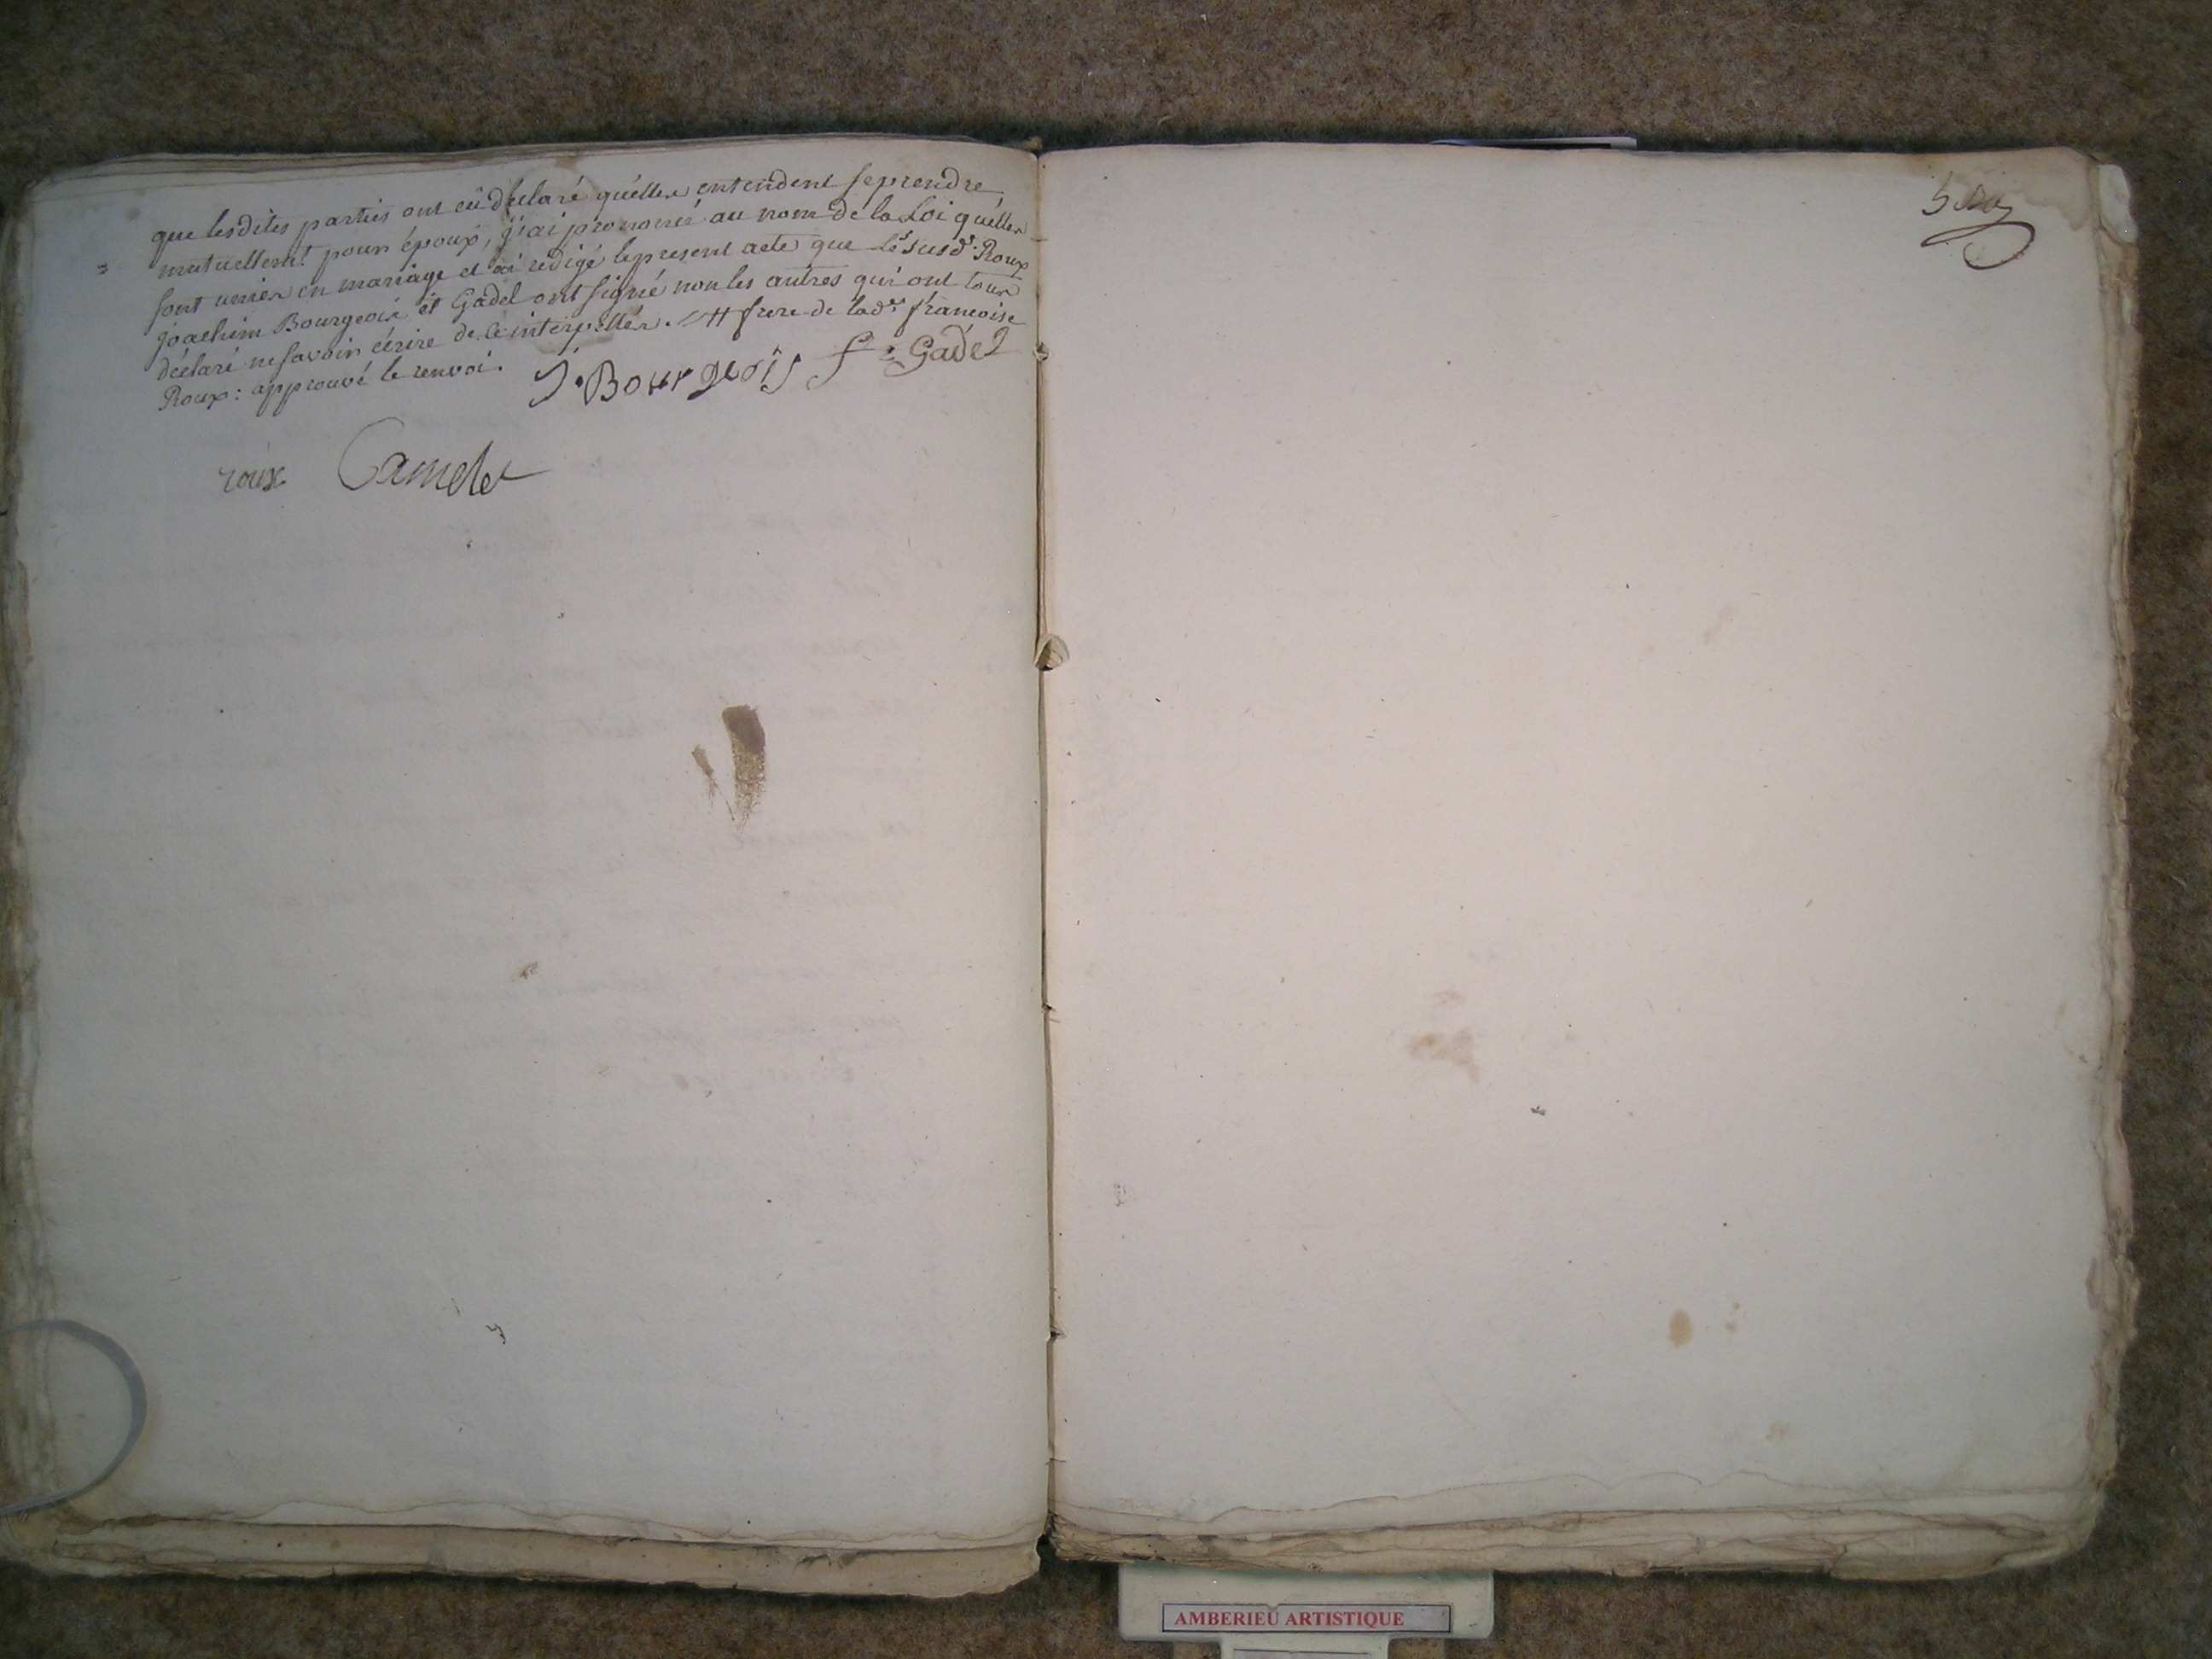 que lesdites parties ont eû déclaré quélles entendent se prendre
mutuellemt. pour époux, j'ai prononcé au nom de la Loi quélles
sont unies en mariage et ai redigé le present acte que les susds. Roux
joachim Bourgeois et Gadel ont signé non les autres qui ont tous
déclaré ne savoir écrire de ce interpellés. // frere de lade. francoise
Roux: approuvé le renvoi.
J. Bourgeois f. Gadel
roux Camelet
AMBERIEU ARTISTIQUE